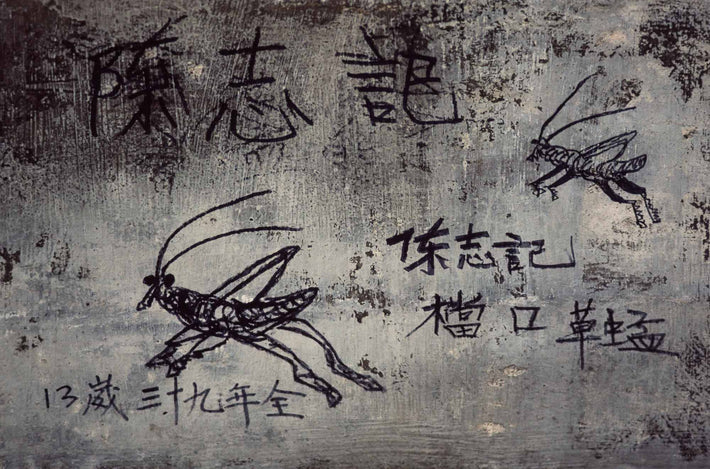 陳志記
陈志記
檔口草蜢
13歲三十九年全